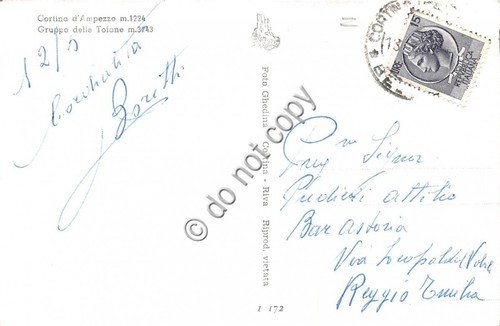 Cortina d'Ampezzo m.1224
Gruppo delle Tofane m.3243
12/3
Cordialità
Foto Ghedina - Cortina - Riva Riprod. vietata
1 172
© do not copy
CORTINA
15
Preg Signor
Attilio
Bar Astoria
Via Leopoldo Nobili
Reggio Emilia